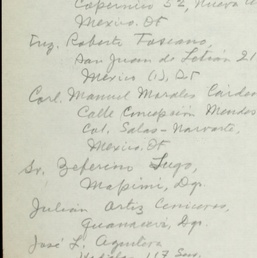 Copernico 52, Nueva
Mexico. DF
Ing. Roberto Toscano,
San Juan de Letrán 21
Mexico (1), DF
Corl. Manuel Morales Cárden
Calle Concepción Mendez
Col. Salas-Narvarte,
Mexico. DF
Sr. Zeferino Lugo,
Mapimi, Dgo.
Julián Artiz Cenicero,
Guanacevi, Dgo.
José L. Aguilera
Hidalgo 117 Sur,